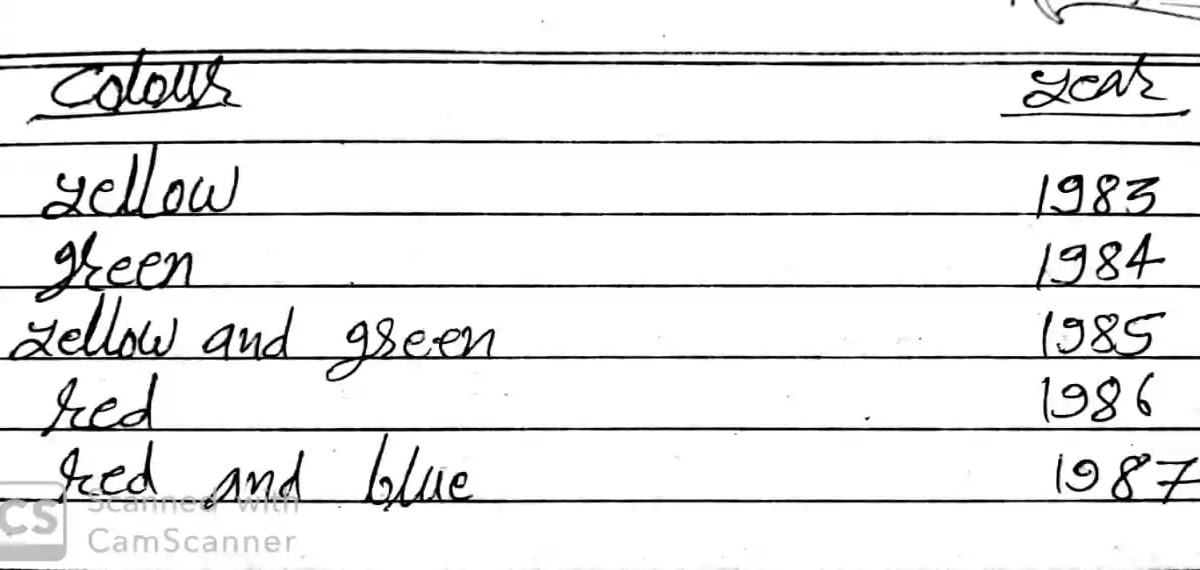 Colour year
yellow 1983
green 1984
yellow and green 1985
red 1986
red and blue 1987
CS Scanned with
CamScanner